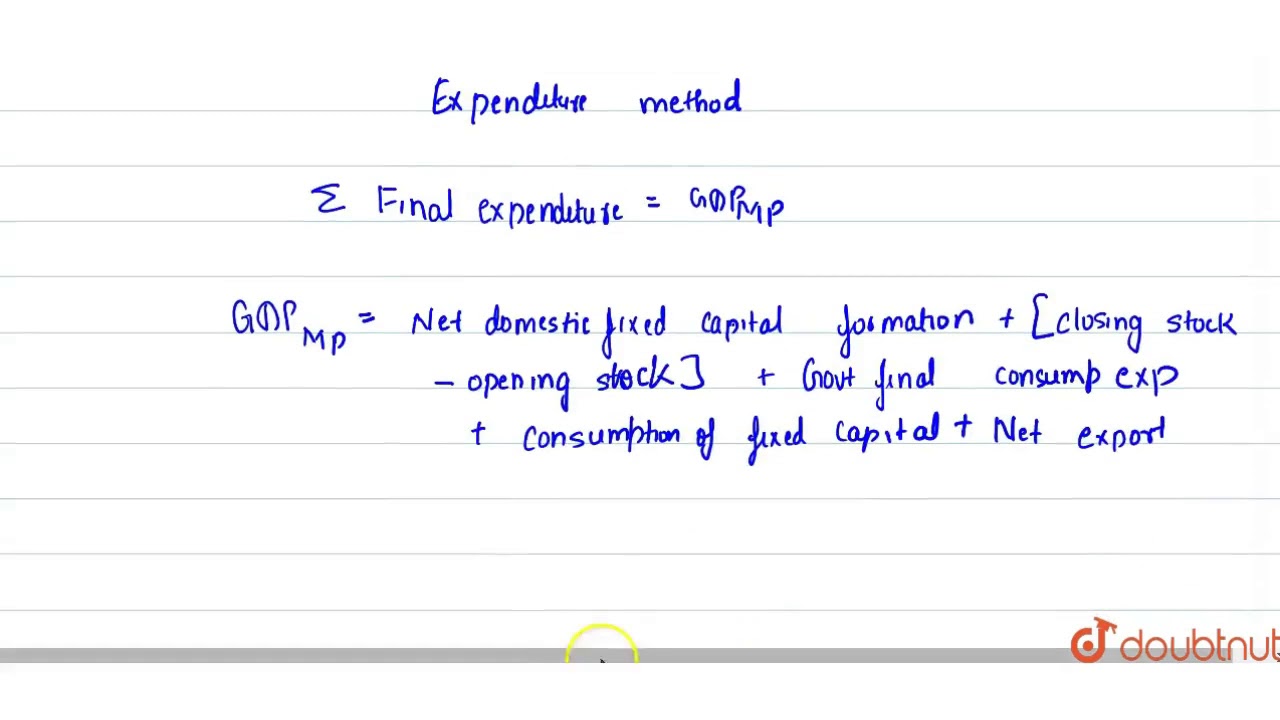 Expenditure method
Σ Final expenditure = GDPMP
GDPMP = Net domestic fixed capital formation + [closing stock
- opening stock] + Govt final consump exp
+ consumption of fixed capital + Net export
doubtnut